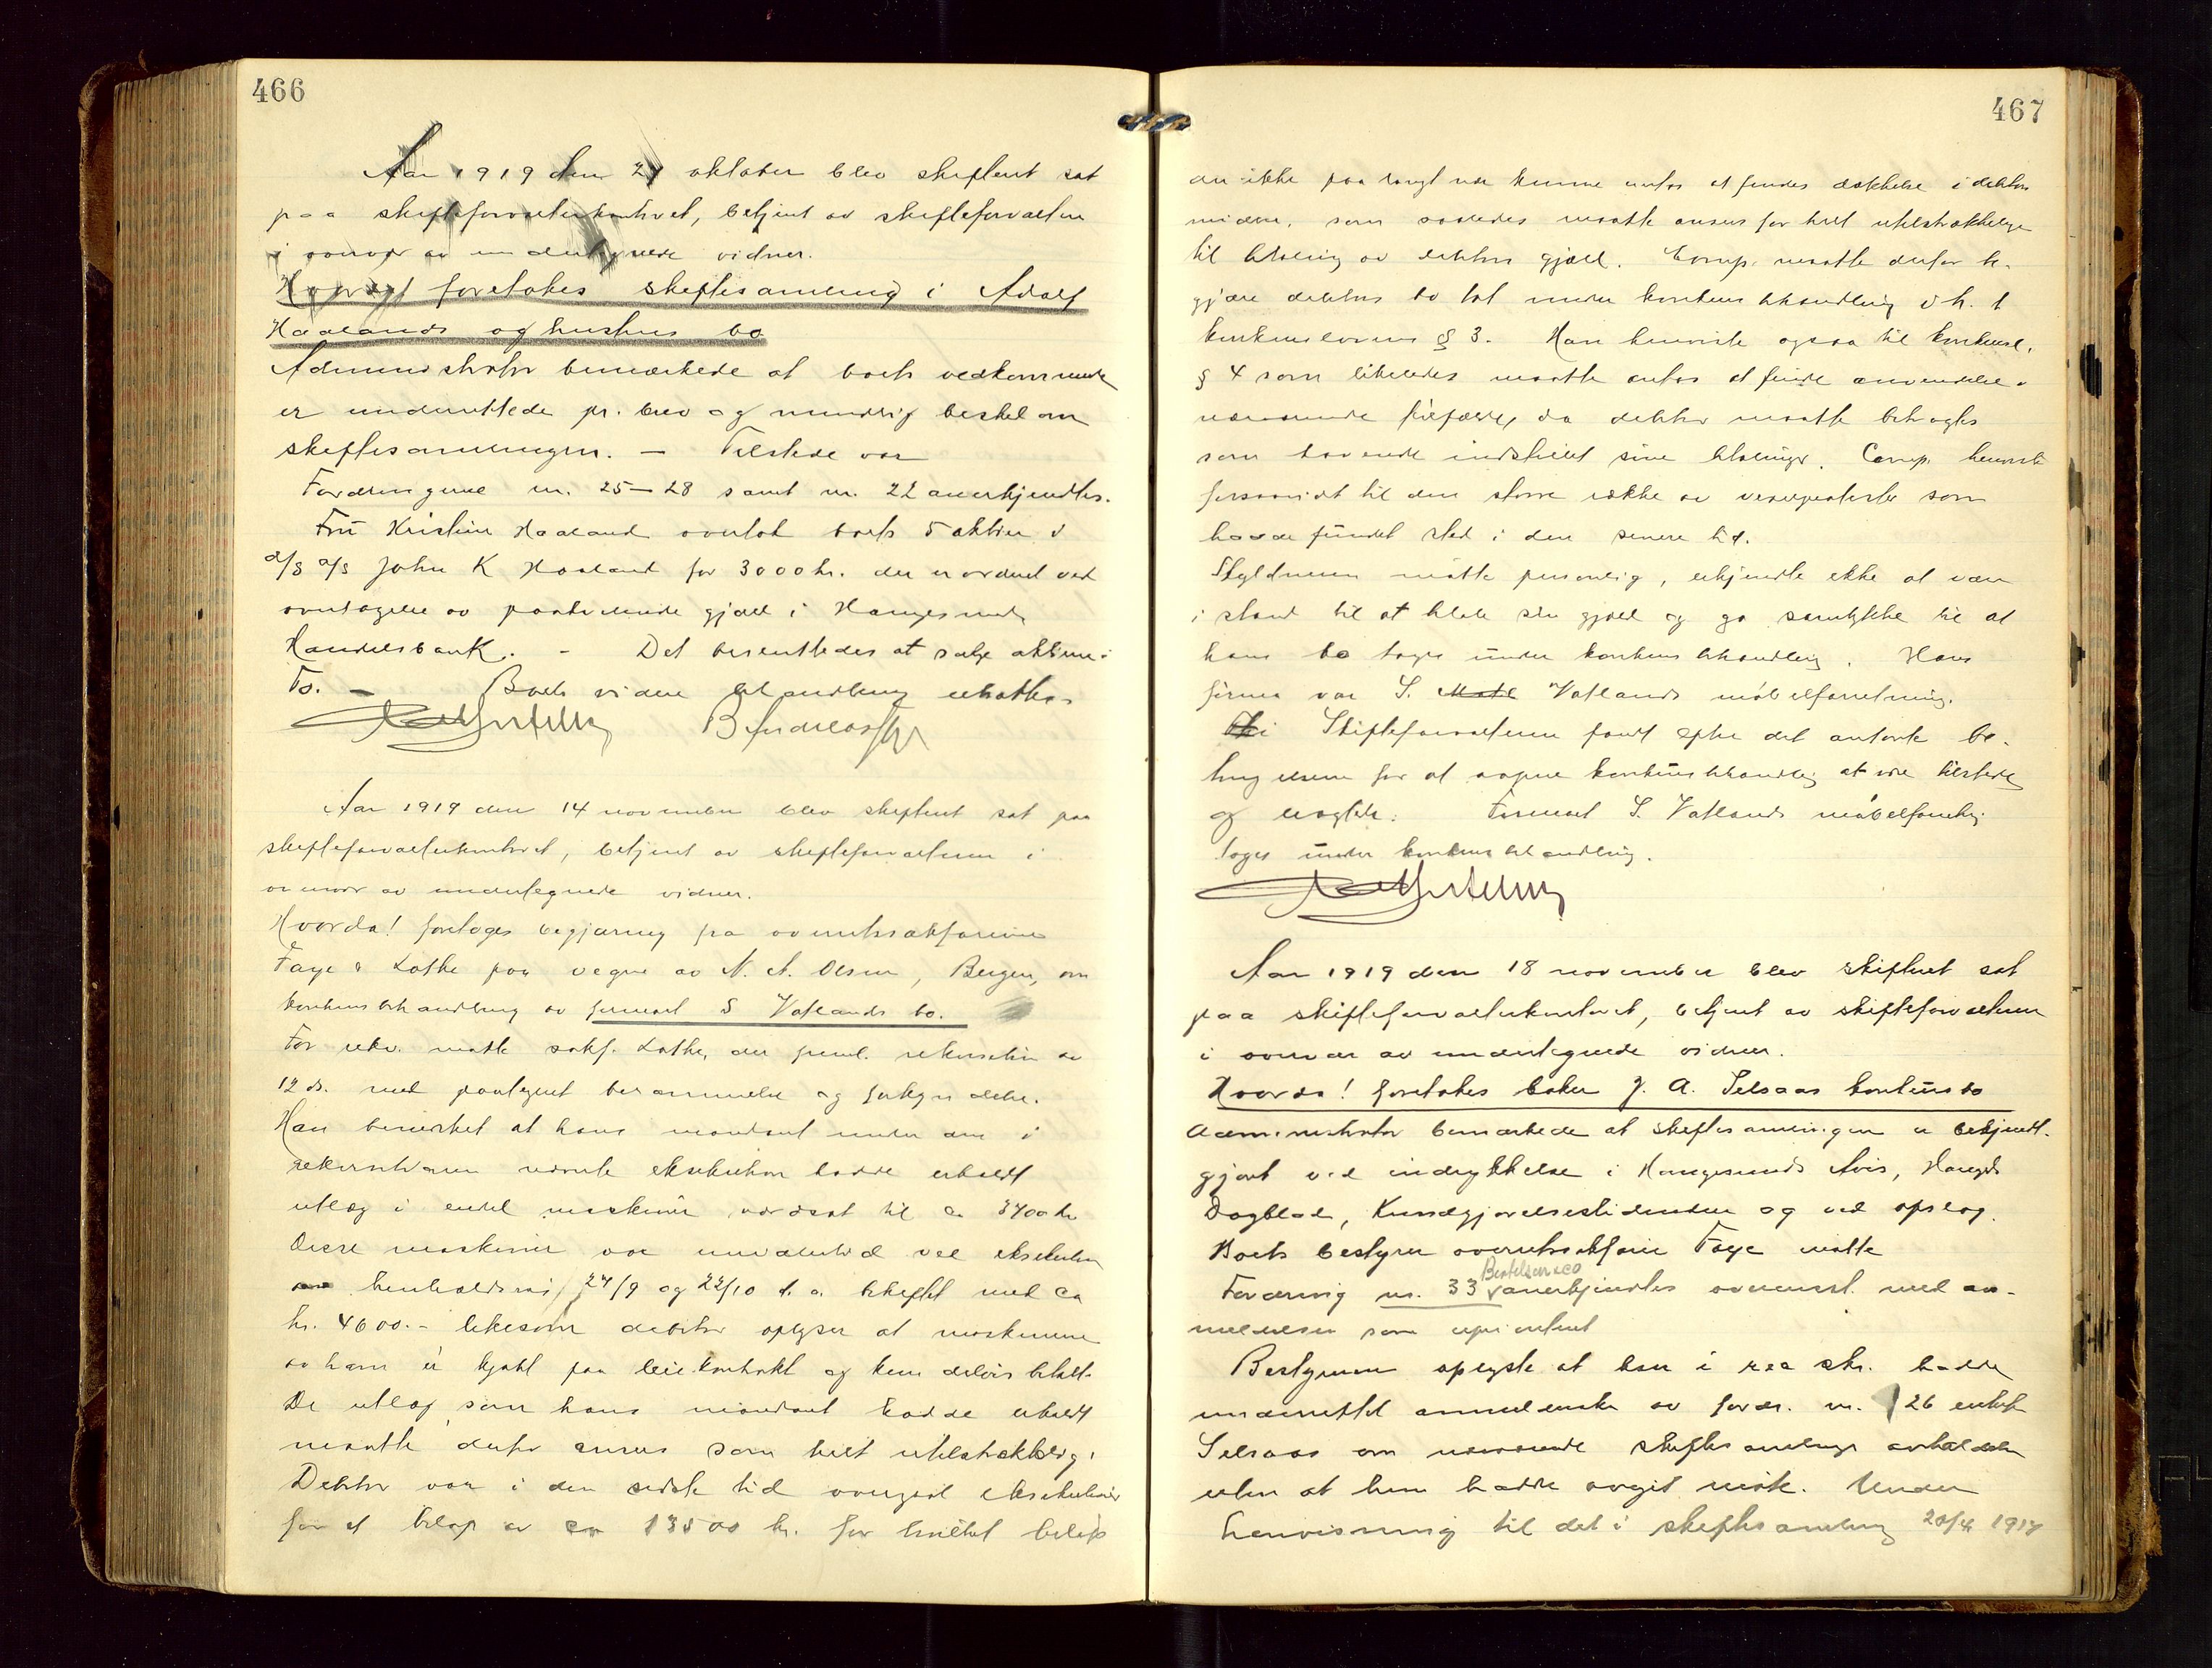 466
Aar 1919 den 27 oktober blev skifteret sat
paa skifteforvalterkontoret, betjent av skifteforvalteren
i overvær av undertegnede vidner.
Hvorda! foretokes skiftesamling i Adolf
Haalands og hustrus bo
Administrator bemærkede at boets vedkommende
er underrettede pr. brev og mundtlig beskei om
skiftesamlingen. — Tilstede var
Fordringene nr. 25–28 samt nr. 22 anerkjendtes.
Fru Kristine Haaland overtok boets 5 aktier i
a/s a/s John K Haaland for 3000 kr. der er ordnet ved
overtagelse av paahvilende gjæld i Haugesunds
Handelsbank. - Det besluttedes at sælge aktiene i
To. — Boets videre behandling utsattes
B Andreassen
Aar 1919 den 14 november blev skifteret sat paa
skifteforvalterkontoret, betjent av skifteforvalteren i
overvær av undertegnede vidner.
Hvorda! foretoges begjæring fra overretssakførerne
Faye & Lothe paa vegne av N. A. Olsen, Bergen, om
konkursbehandling av firmaet S Vatlands bo.
For rekv. møtte sakf. Lothe, der freml. rekvisition av
12 ds. med paategnet berammelse og forkyndelse.
Han bemerket at hans mandant under den i
rekvisitionen nævnte eksekution hadde erholdt
utlæg i endel maskiner værdsat til ca 3400 kr
Disse maskiner var imidlertid ved eksekution
henholdsvis 24/9 og 22/10 d. a. beheftet med ca
kr. 4600.- likesom debitor oplyser at maskinene
av ham er kjøbt paa leiekontrakt og kun delvis betalt.
De utlæg som hans mandant hadde erholdt
maatte derfor ansees som helt utilstrækkelig.
Debitor var i den sidste tid overgaat eksekutioner
for et beløp av ca 13500 kr. for hvilket beløp
467
der ikke paa langt nær kunne antas at findes dækkelse i debitors
midler, som saaledes maatte ansees for helt utilstrækkelige
til betaling av debitors gjæld. Comp. maatte derfor be-
gjære debitors bo tat under konkursbehandling i h. t
konkurslovens § 3. Han henviste ogsaa til konkursl.
§ 4 som likeledes maatte antas at finde anvendelse i
nærværende tilfælde, da debitor maatte betragtes
som havende indstillet sine betalinger. Comp. henviste
forsaavidt til den større række av vexelprotester som
havde fundet sted i den senere tid.
Skyldneren møtte personlig, erkjendte ikke at være
i stand til at betale sin gjæld og ga samtykke til at
hans bo toges under konkursbehandling. Hans
firma var S. Vatlands møbelforretning.
Skifteforvalteren fandt efter det anførte be-
tingelsene for at aapne konkursbehandling at være tilstede
og eragtede: Firmaet S. Vatlands møbelforretning
toges under konkursbehandling.
Aar 1919 den 18 november blev skifteret sat
paa skifteforvalterkontoret, betjent av skifteforvalteren
i overvær av undertegnede vidner.
Hvorda! foretokes baker J. A. Selsaas konkursbo
Administrator bemærkede at skiftesamlingen er bekjendt-
gjort ved indrykkelse i Haugesunds Avis, Haugesds
Dagblad, Kundgjørelsestidenden og ved opslag.
Boets bestyrer overretssakfører Faye møtte
Bertelsen &co
Fordring nr. 33 anerkjendtes overensst. med an-
meldelsen som uprioritert
Bestyreren oplyste at han i rec skr. hadde
underrettet anmelderske av fordr. nr. 26 enkefr
Selsaas om nærværende skiftesamlings avholdelse
uten at hun hadde avgit møte. Under
henvisning til det i skiftesamling 20/4 1917